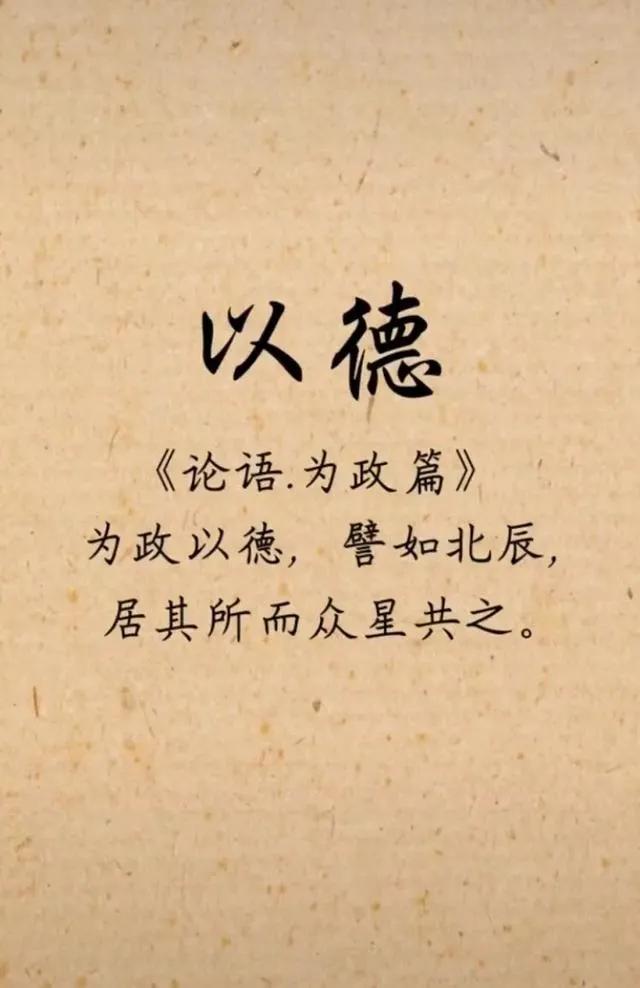 以德
《论语.为政篇》
为政以德，譬如北辰，
居其所而众星共之。